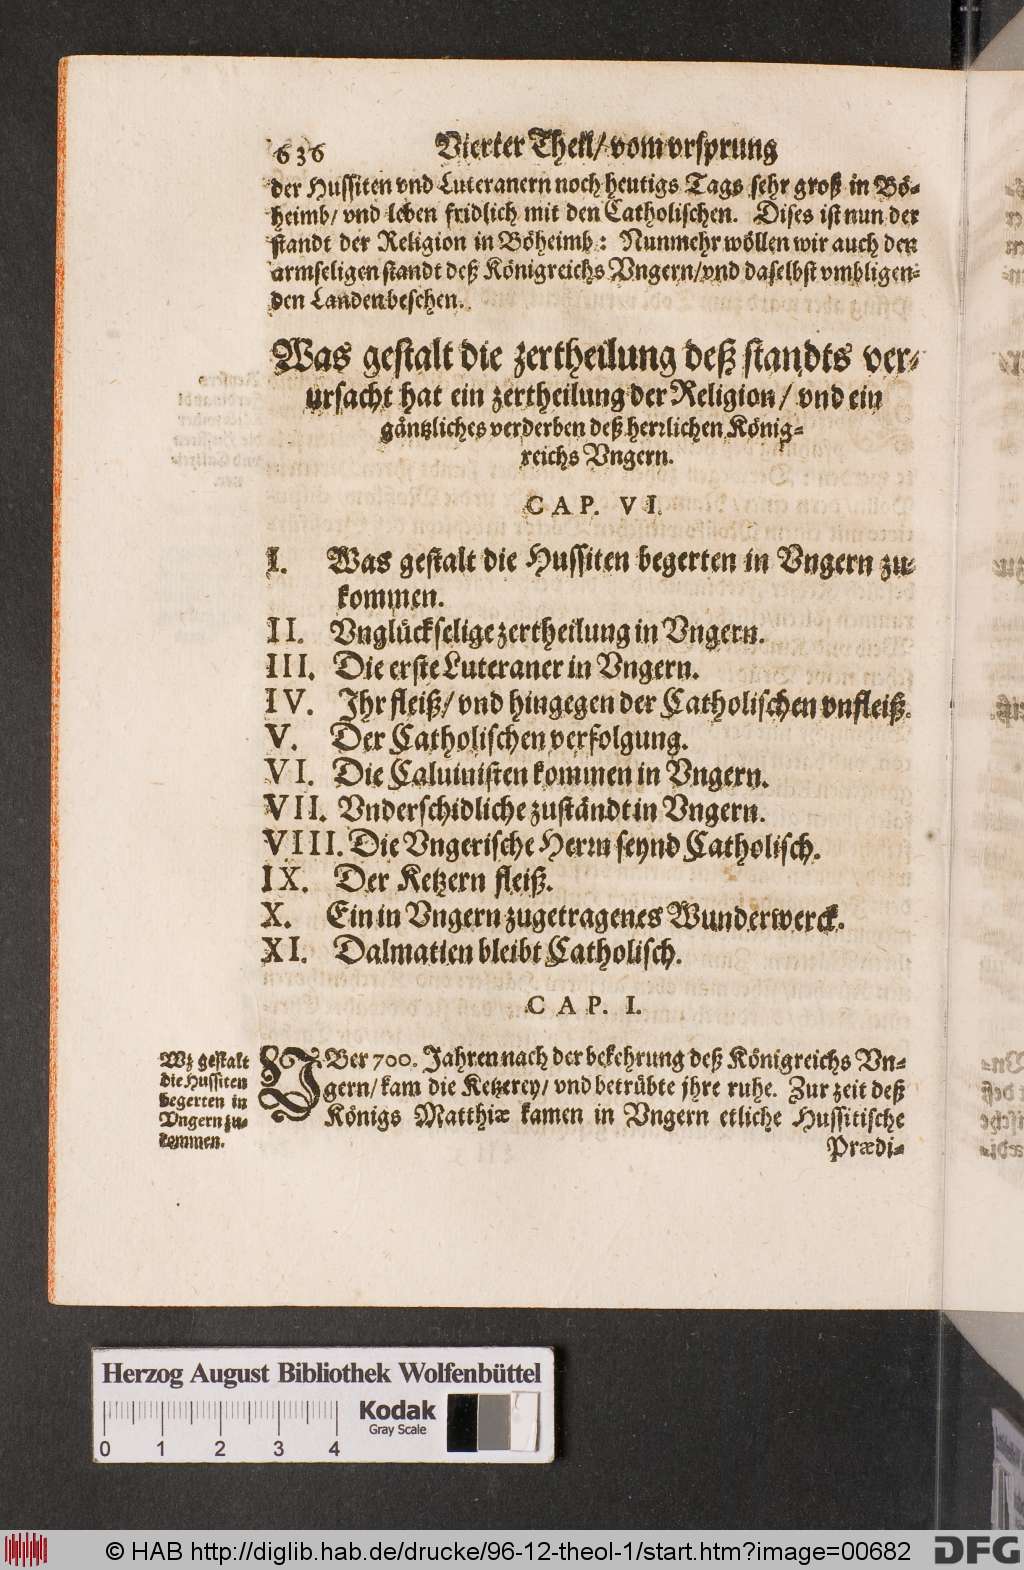 636 Vierter Theil/ vom vrsprung
der Hussiten vnd Luteranern noch heutigs Tags sehr groß in Bö-
heimb/ vnd leben fridlich mit den Catholischen. Dises ist nun der
standt der Religion in Böheimb: Nunmehr wöllen wir auch den
armseligen standt deß Königreichs Vngern/ vnd daselbst vmbligen-
den Landen beschen.
Was gestalt die zertheilung deß standts ver-
ursacht hat ein zertheilung der Religion/ vnd ein
gäntzliches verderben deß herrlichen König-
reichs Vngern.
CAP. VI.
I. Was gestalt die Hussiten begerten in Vngern zu-
kommen.
II. Vnglückselige zertheilung in Vngern.
III. Die erste Luteraner in Vngern.
IV. Ihr fleiß/ vnd hingegen der Catholischen vnfleiß.
V. Der Catholischen verfolgung.
VI. Die Caluinisten kommen in Vngern.
VII. Vnderschidliche zuständt in Vngern.
VIII. Die Vngerische Herrn seynd Catholisch.
IX. Der Ketzern fleiß.
X. Ein in Vngern zugetragenes Wunderwerck.
XI. Dalmatien bleibt Catholisch.
CAP. I.
Wz gestalt
die Hussiten
begerten in
Vngern zu-
kommen.
VBer 700. Jahren nach der bekehrung deß Königreichs Vn-
gern/ kam die Ketzerey/ vnd betrübte jhre ruhe. Zur zeit deß
Königs Matthiæ kamen in Vngern etliche Hussitische
Prædi-
Herzog August Bibliothek Wolfenbüttel
Kodak
Gray Scale
0 1 2 3 4
© HAB http://diglib.hab.de/drucke/96-12-theol-1/start.htm?image=00682
DFG